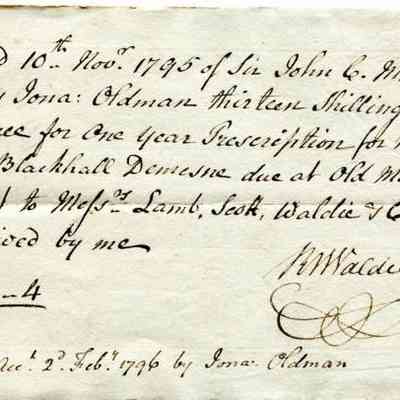 10th. Novr. 1795 of Sir John C. M
Jona: Oldman thirteen Shilling
for One year Prescription for
Blackhall Demesne due at Old M
to Messrs. Lamb, Scott, Waldie & C
by me
RWaldie
-4
2d. Feby. 1796 by Jona: Oldman